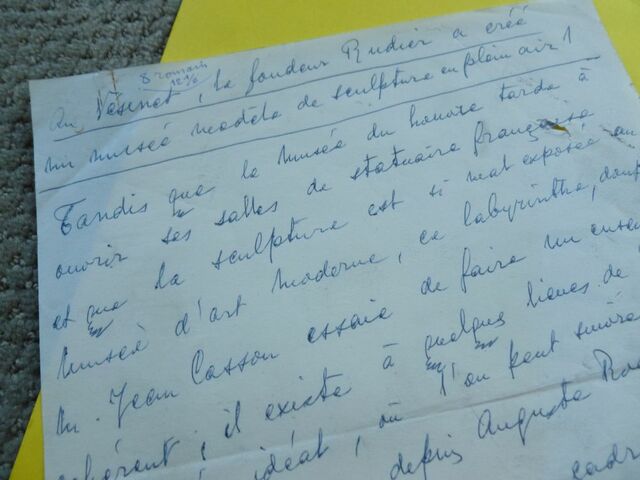 8 romain
12 1/2
Au Vésinet, le fondeur Rudier a créé
un musée modèle de sculpture en plein air !
Tandis que le Musée du Louvre tarde à
ouvrir ses salles de statuaire française
et que la sculpture est si mal exposée au
Musée d'art moderne, ce labyrinthe, dont
M. Jean Casson essaie de faire un ensem
cohérent, il existe à quelques lieues de
idéal, où l'on peut suivre
depuis Auguste Rod
cadr